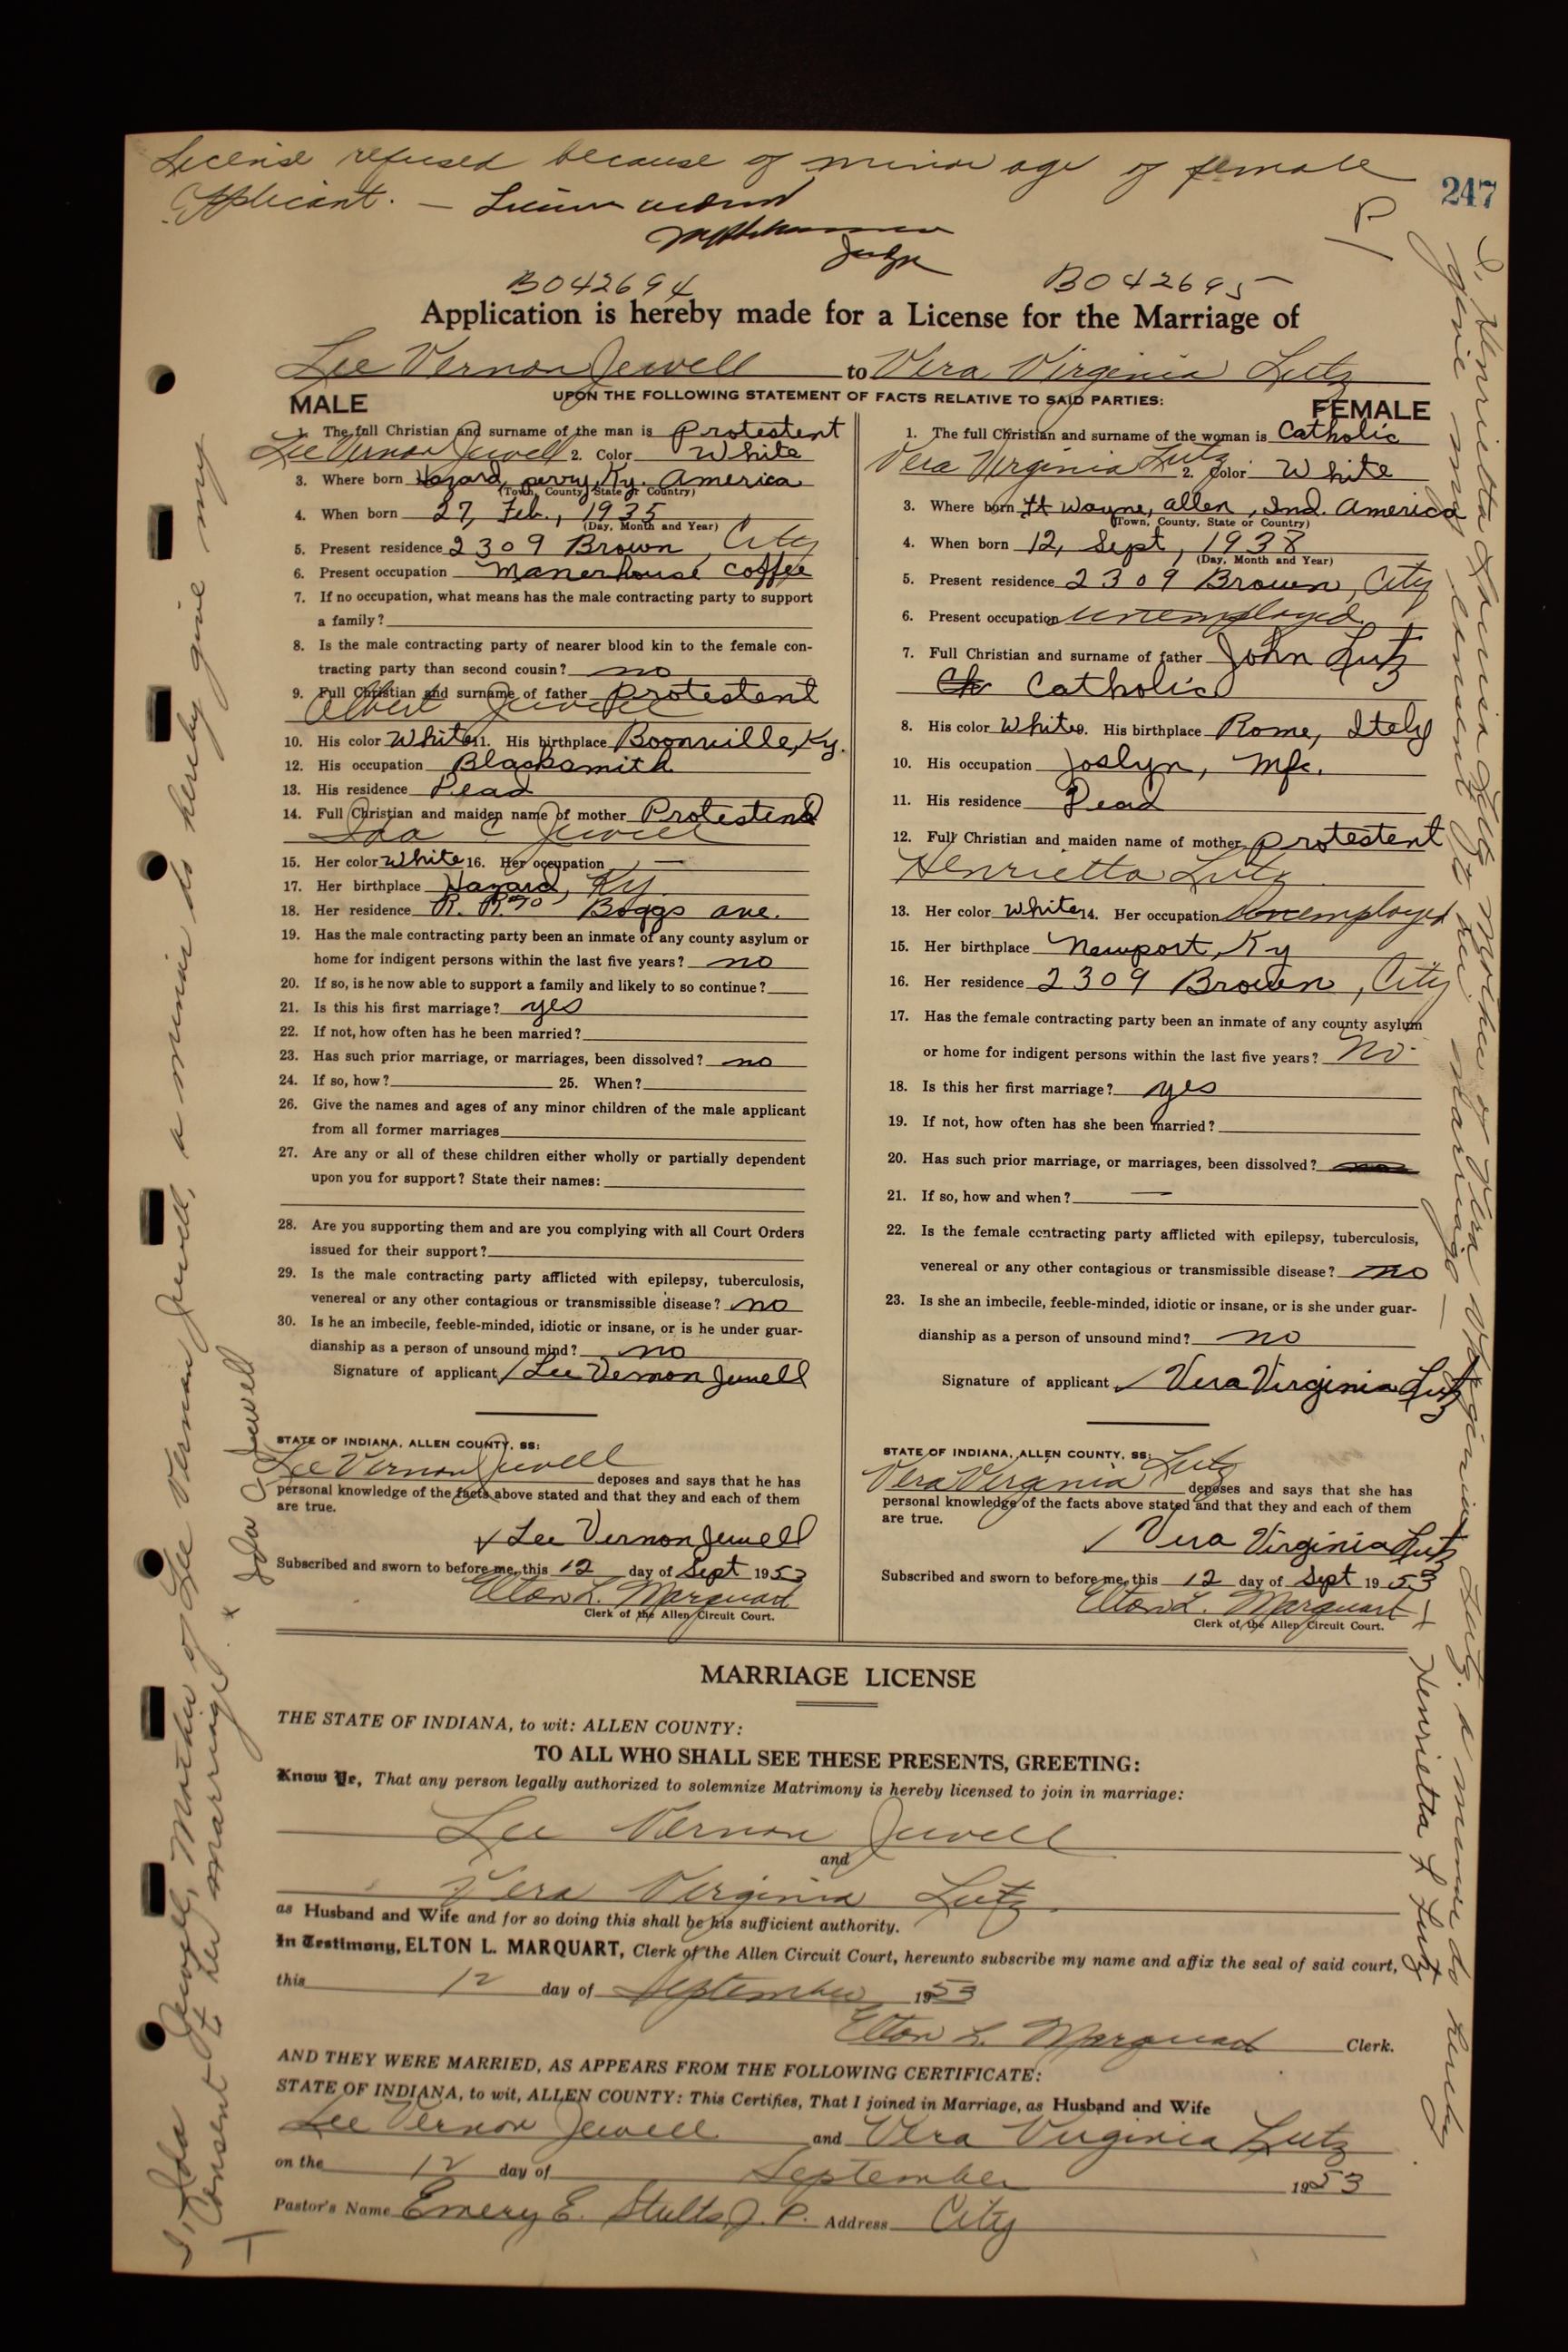 License refused because of minor age of female
Applicant. —
Judge
247
P
B042694
B042695
Application is hereby made for a License for the Marriage of
Lee Vernon Jewell to Vera Virginia Lutz
UPON THE FOLLOWING STATEMENT OF FACTS RELATIVE TO SAID PARTIES:
MALE
1. The full Christian and surname of the man is Protestent
Lee Vernon Jewell 2. Color White
3. Where born Hazard, perry, Ky. America
(Town, County, State or Country)
4. When born 27, Feb., 1935
(Day, Month and Year)
5. Present residence 2309 Brown, City
6. Present occupation Manerhouse coffee
7. If no occupation, what means has the male contracting party to support
a family?
8. Is the male contracting party of nearer blood kin to the female con-
tracting party than second cousin? no
9. Full Christian and surname of father Protestent
Albert Jewell
10. His color White 11. His birthplace Boonville, Ky.
12. His occupation Blacksmith
13. His residence Dead
14. Full Christian and maiden name of mother Protestent
Ida C Jewell
15. Her color White 16. Her occupation —
17. Her birthplace Hazard, Ky.
18. Her residence R. R. 10 Boggs ave.
19. Has the male contracting party been an inmate of any county asylum or
home for indigent persons within the last five years? no
20. If so, is he now able to support a family and likely to so continue?
21. Is this his first marriage? yes
22. If not, how often has he been married?
23. Has such prior marriage, or marriages, been dissolved? no
24. If so, how? 25. When?
26. Give the names and ages of any minor children of the male applicant
from all former marriages
27. Are any or all of these children either wholly or partially dependent
upon you for support? State their names:
28. Are you supporting them and are you complying with all Court Orders
issued for their support?
29. Is the male contracting party afflicted with epilepsy, tuberculosis,
venereal or any other contagious or transmissible disease? no
30. Is he an imbecile, feeble-minded, idiotic or insane, or is he under guar-
dianship as a person of unsound mind? no
Signature of applicant Lee Vernon Jewell
STATE OF INDIANA, ALLEN COUNTY, SS:
Lee Vernon Jewell deposes and says that he has
personal knowledge of the facts above stated and that they and each of them
are true.
x Lee Vernon Jewell
Subscribed and sworn to before me, this 12 day of Sept 1953
Elton L. Marquart
Clerk of the Allen Circuit Court.
FEMALE
1. The full Christian and surname of the woman is Catholic
Vera Virginia Lutz 2. Color White
3. Where born Ft Wayne, Allen, Ind. America
(Town, County, State or Country)
4. When born 12, Sept, 1938
(Day, Month and Year)
5. Present residence 2309 Brown, City
6. Present occupation unemployed
7. Full Christian and surname of father John Lutz
Catholic
8. His color White 9. His birthplace Rome, Italy
10. His occupation Joslyn, Mfc.
11. His residence Dead
12. Full Christian and maiden name of mother protestent
Henrietta Lutz
13. Her color White 14. Her occupation Unemployed
15. Her birthplace Newport, Ky
16. Her residence 2309 Brown, City
17. Has the female contracting party been an inmate of any county asylum
or home for indigent persons within the last five years? No
18. Is this her first marriage? yes
19. If not, how often has she been married?
20. Has such prior marriage, or marriages, been dissolved?
21. If so, how and when? —
22. Is the female contracting party afflicted with epilepsy, tuberculosis,
venereal or any other contagious or transmissible disease? no
23. Is she an imbecile, feeble-minded, idiotic or insane, or is she under guar-
dianship as a person of unsound mind? no
Signature of applicant Vera Virginia Lutz
STATE OF INDIANA, ALLEN COUNTY, SS:
Vera Virginia Lutz deposes and says that she has
personal knowledge of the facts above stated and that they and each of them
are true.
Vera Virginia Lutz
Subscribed and sworn to before me, this 12 day of Sept 1953
Elton L. Marquart
Clerk of the Allen Circuit Court.
MARRIAGE LICENSE
THE STATE OF INDIANA, to wit: ALLEN COUNTY:
TO ALL WHO SHALL SEE THESE PRESENTS, GREETING:
Know Ye, That any person legally authorized to solemnize Matrimony is hereby licensed to join in marriage:
Lee Vernon Jewell
and
Vera Virginia Lutz
as Husband and Wife and for so doing this shall be his sufficient authority.
In Testimony, ELTON L. MARQUART, Clerk of the Allen Circuit Court, hereunto subscribe my name and affix the seal of said court,
this 12 day of September 1953
Elton L. Marquart Clerk.
AND THEY WERE MARRIED, AS APPEARS FROM THE FOLLOWING CERTIFICATE:
STATE OF INDIANA, to wit, ALLEN COUNTY: This Certifies, That I joined in Marriage, as Husband and Wife
Lee Vernon Jewell and Vera Virginia Lutz
on the 12 day of September 1953
Pastor's Name Emery E. Stults J. P. Address City
I, Ida Jewell, Mother of Lee Vernon Jewell, a minor do hereby give my
Consent to his marriage.
x Ida C Jewell
I, Henrietta Lutz Mother of Vera Virginia Lutz, a minor do hereby
give my consent to her marriage —
x Henrietta L Lutz